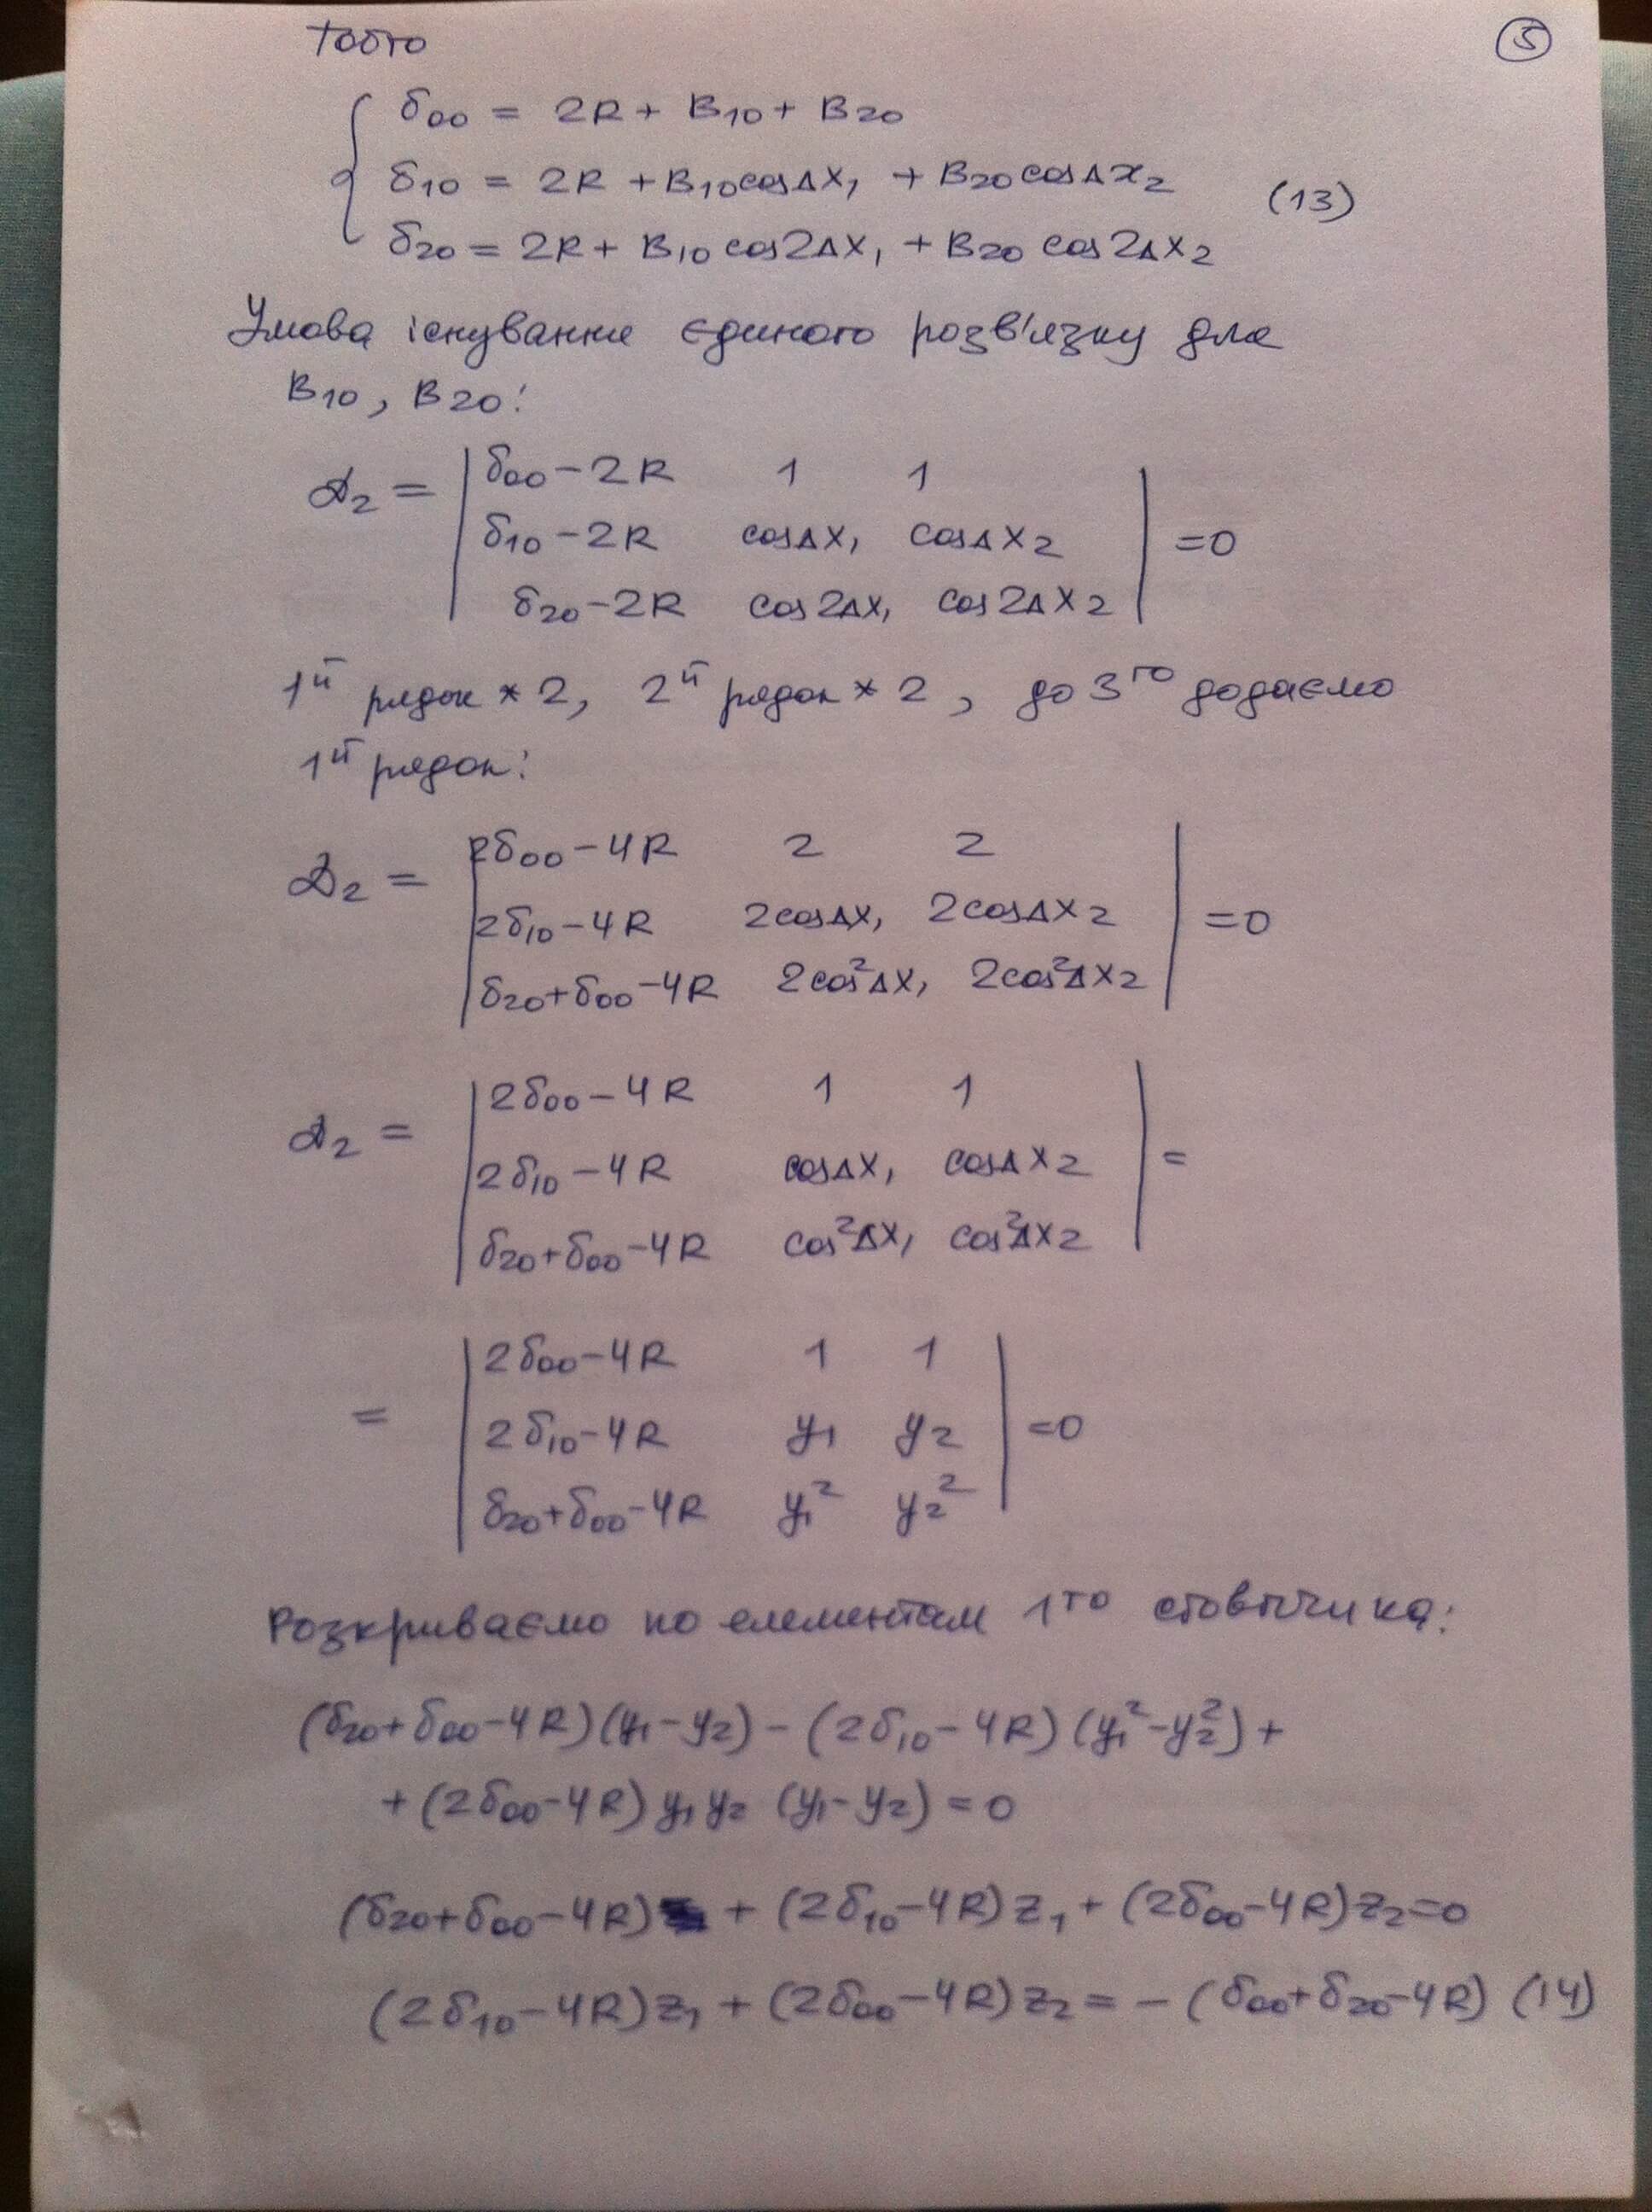 Тобто
⑤
δ00 = 2R + B10 + B20
δ10 = 2R + B10 cosΔx1 + B20 cosΔx2 (13)
δ20 = 2R + B10 cos2Δx1 + B20 cos2Δx2
Умова існування єдиного розв'язку для
B10, B20:
D2 = | δ00 − 2R 1 1 |
| δ10 − 2R cosΔx1 cosΔx2 | = 0
| δ20 − 2R cos2Δx1 cos2Δx2 |
1й рядок * 2, 2й рядок * 2, до 3го додаємо
1й рядок:
D2 = | 2δ00 − 4R 2 2 |
| 2δ10 − 4R 2cosΔx1 2cosΔx2 | = 0
| δ20 + δ00 − 4R 2cos²Δx1 2cos²Δx2 |
D2 = | 2δ00 − 4R 1 1 |
| 2δ10 − 4R cosΔx1 cosΔx2 | =
| δ20 + δ00 − 4R cos²Δx1 cos²Δx2 |
= | 2δ00 − 4R 1 1 |
| 2δ10 − 4R y1 y2 | = 0
| δ20 + δ00 − 4R y1² y2² |
Розкриваємо по елементам 1го стовпчика:
(δ20 + δ00 − 4R)(y1 − y2) − (2δ10 − 4R)(y1² − y2²) +
+ (2δ00 − 4R) y1 y2 (y1 − y2) = 0
(δ20 + δ00 − 4R) + (2δ10 − 4R) z1 + (2δ00 − 4R) z2 = 0
(2δ10 − 4R) z1 + (2δ00 − 4R) z2 = − (δ00 + δ20 − 4R) (14)